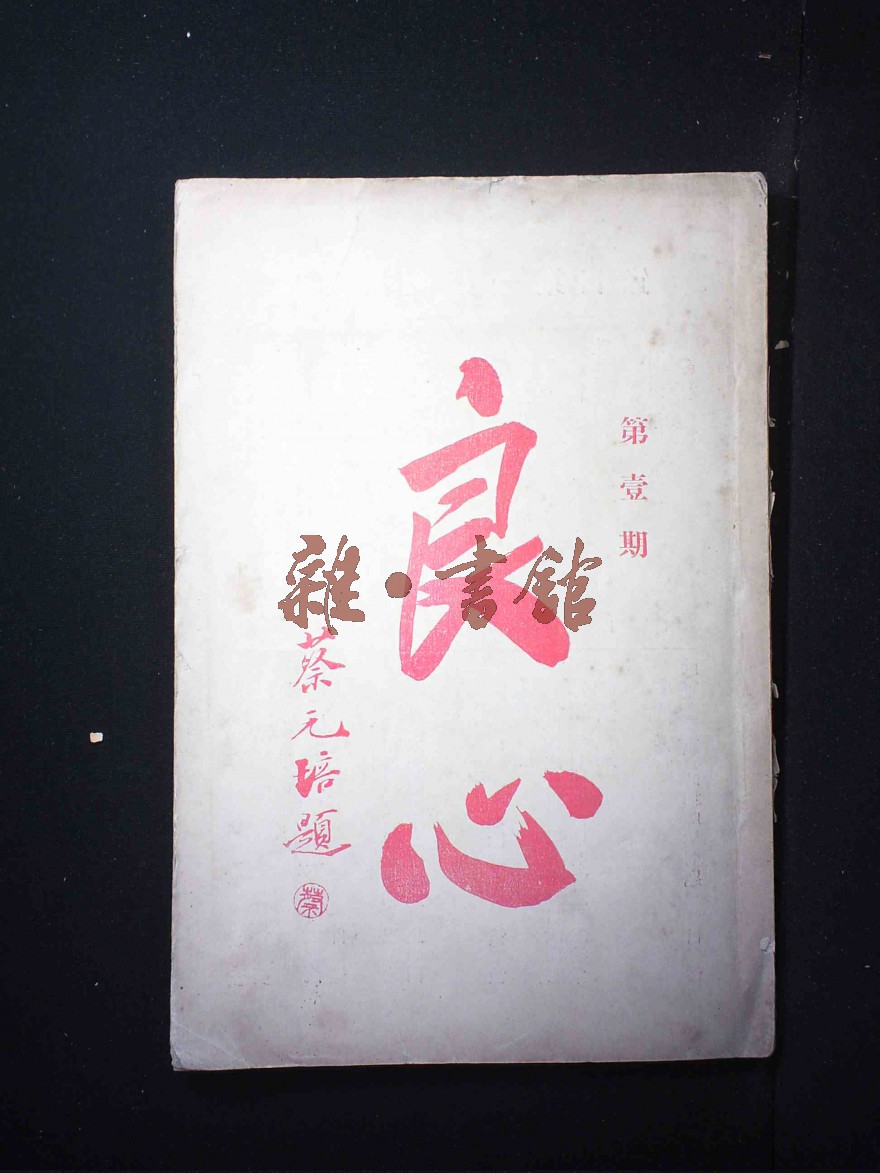 第壹期
良心
蔡元培題
蔡
雜·書館